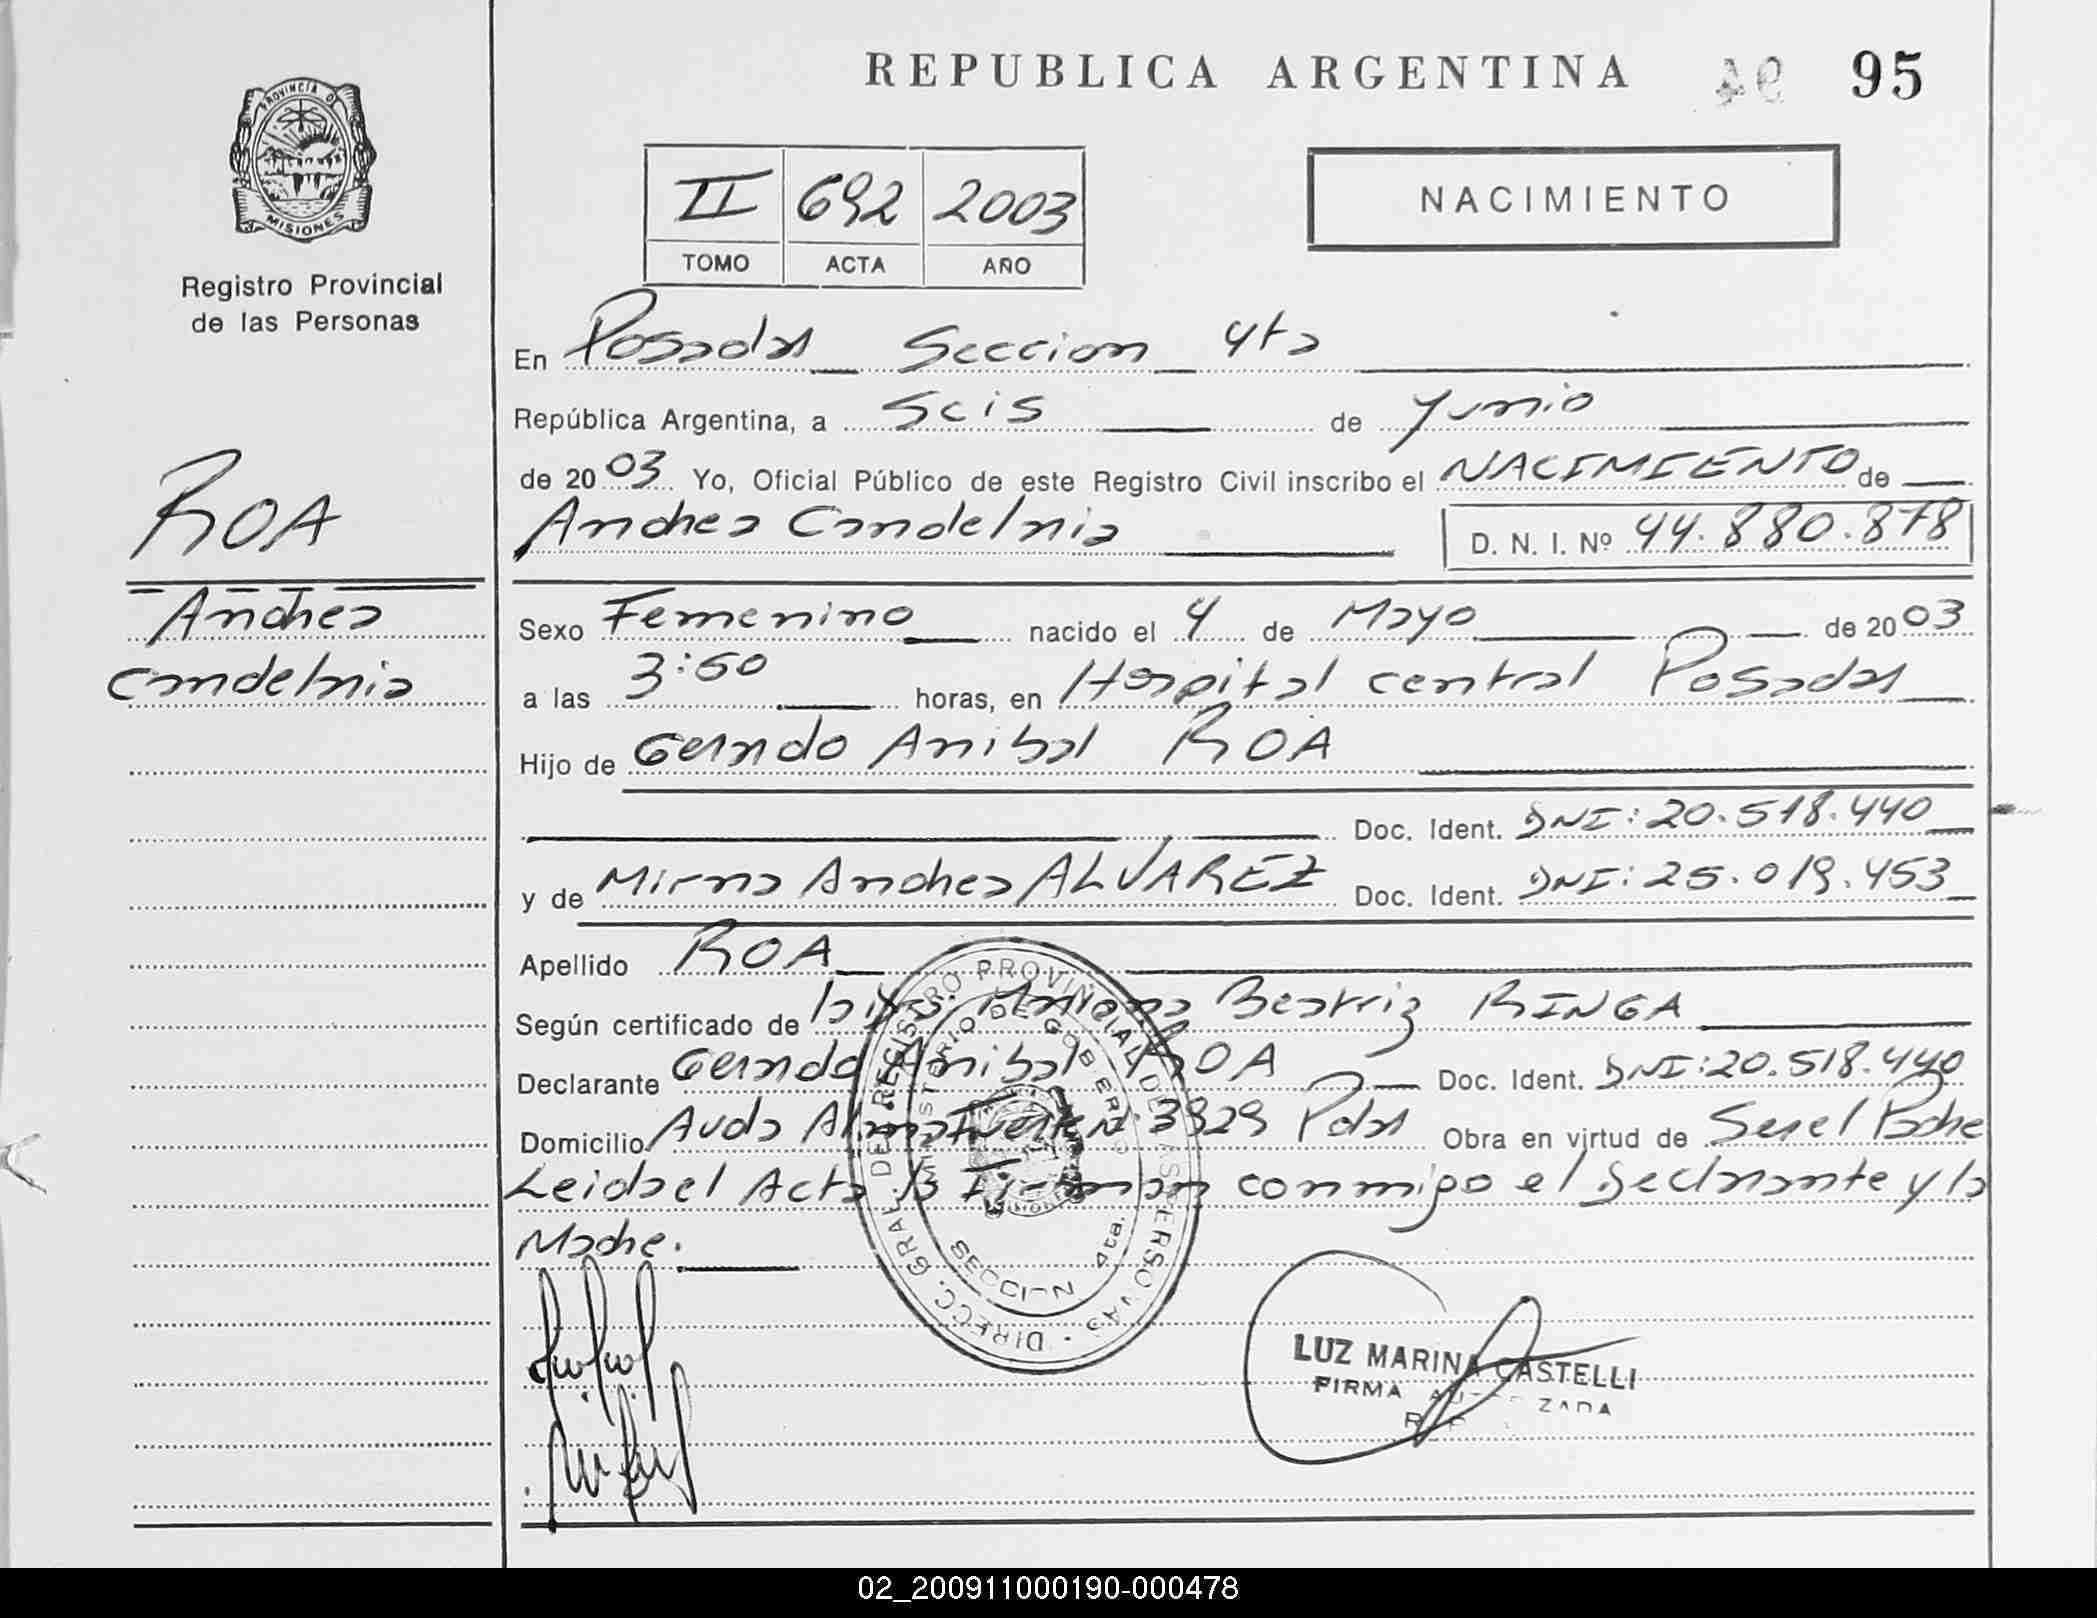 REPUBLICA ARGENTINA 95
PROVINCIA DE
MISIONES
Registro Provincial
de las Personas
II 692 2003
TOMO ACTA AÑO
NACIMIENTO
En Posadas Seccion 4ta
República Argentina, a Seis de Junio
de 2003 Yo, Oficial Público de este Registro Civil inscribo el NACIMIENTO de
Andrea Candelaria D. N. I. Nº 44.880.878
ROA
Andrea
Candelaria
Sexo Femenino nacido el 4 de Mayo de 2003
a las 3:50 horas, en Hospital central Posadas
Hijo de Gerardo Anibal ROA
Doc. Ident. DNI: 20.518.440
y de Mirna Andrea ALVAREZ Doc. Ident. DNI: 25.019.453
Apellido ROA
Según certificado de Mariana Beatriz RINGA
Declarante Gerardo Anibal ROA Doc. Ident. DNI: 20.518.440
Domicilio Avda Almafuerte Nº 3829 Pdas Obra en virtud de Ser el Padre
Leida el Acta la Firman conmigo el Declarante y la
Madre.
DIRECC. GRAL. DEL REGISTRO PROVINCIAL DE LAS PERSONAS
MINISTERIO DE GOBIERNO
SECCION 4ta.
LUZ MARINA CASTELLI
FIRMA AUTORIZADA
02_200911000190-000478